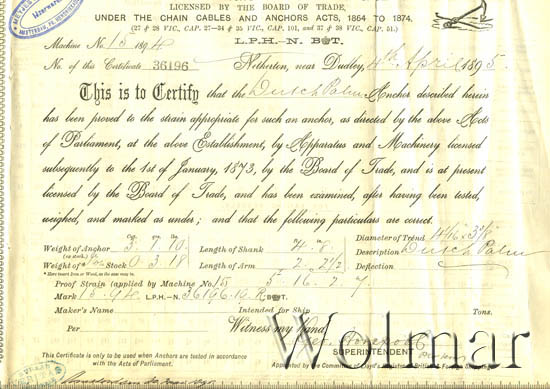 LICENSED BY THE BOARD OF TRADE,
UNDER THE CHAIN CABLES AND ANCHORS ACTS, 1864 TO 1874.
(27 & 28 VIC., CAP. 27—34 & 35 VIC., CAP. 101, and 37 & 38 VIC., CAP. 51.)
Machine No. 15 1894 L.P.H.-N. B T.
No. of this Certificate 36196 Netherton, near Dudley, 4th April 1895.
This is to Certify that the Dutch Palm Anchor described herein
has been proved to the strain appropriate for such an anchor, as directed by the above Acts
of Parliament, at the above Establishment, by Apparatus and Machinery licensed
subsequently to the 1st of January, 1873, by the Board of Trade, and is at present
licensed by the Board of Trade, and has been examined, after having been tested,
weighed, and marked as under; and that the following particulars are correct.
Weight of Anchor 3. 1. 10. Length of Shank 7. 8. Diameter of Trend
Weight of Stock 0. 3. 18 Length of Arm 2. Description Dutch Palm
* Here insert Iron or Wood, as the case may be. Deflection
Proof Strain (applied by Machine No. 15) 5. 16. 2. 7
Mark 15. 94. L.P.H.-N. 36196. B T. Tons.
Maker's Name Intended for Ship
Per Witness my Hand
SUPERINTENDENT
This Certificate is only to be used when Anchors are tested in accordance
with the Acts of Parliament.
Appointed by the Committee of Lloyd's Register of British & Foreign Shipping.
Wolmar